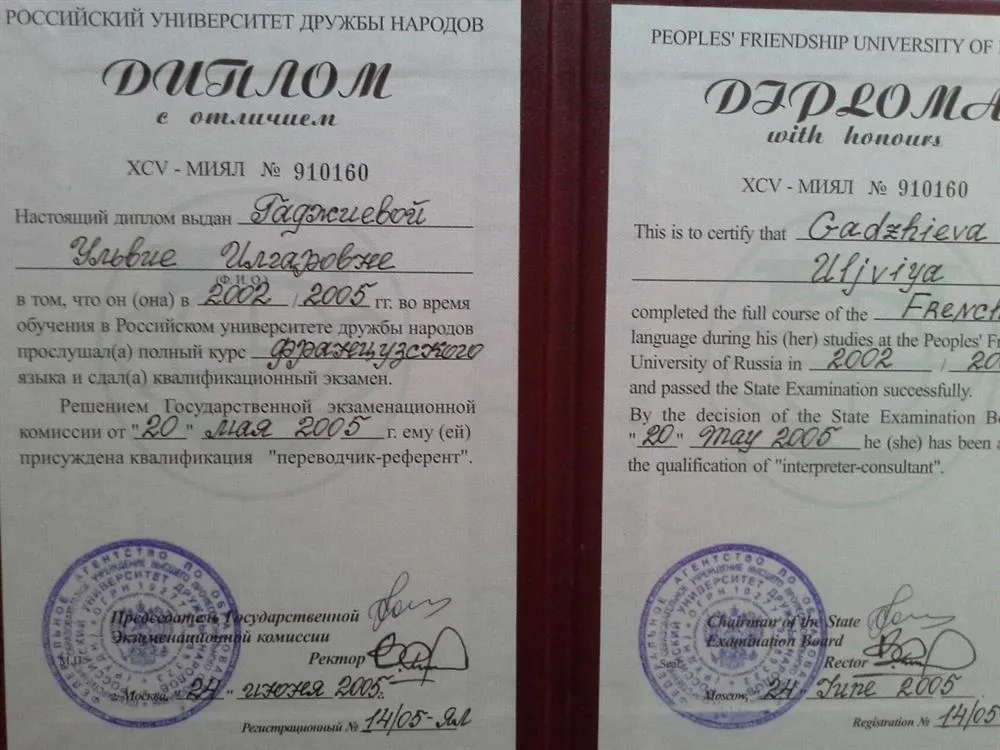 РОССИЙСКИЙ УНИВЕРСИТЕТ ДРУЖБЫ НАРОДОВ
ДИПЛОМ
с отличием
XCV - МИЯЛ № 910160
Настоящий диплом выдан Гаджиевой
Ульвие Илгаровне
(Ф.И.О.)
в том, что он (она) в 2002 / 2005 гг. во время
обучения в Российском университете дружбы народов
прослушал(а) полный курс французского
языка и сдал(а) квалификационный экзамен.
Решением Государственной экзаменационной
комиссии от "20" мая 2005 г. ему (ей)
присуждена квалификация "переводчик-референт".
Председатель Государственной
Экзаменационной комиссии
Ректор
М.П.
г. Москва, "24" июня 2005
Регистрационный № 14/05-ЯЛ
PEOPLES' FRIENDSHIP UNIVERSITY OF
DIPLOMA
with honours
XCV - МИЯЛ № 910160
This is to certify that Gadzhieva
Uljviya
completed the full course of the French
language during his (her) studies at the Peoples' F
University of Russia in 2002 / 20
and passed the State Examination successfully.
By the decision of the State Examination Bo
"20" May 2005 he (she) has been a
the qualification of "interpreter-consultant".
Chairman of the State
Examination Board
Rector
Seal
Moscow, "24" June 2005
Registration № 14/05